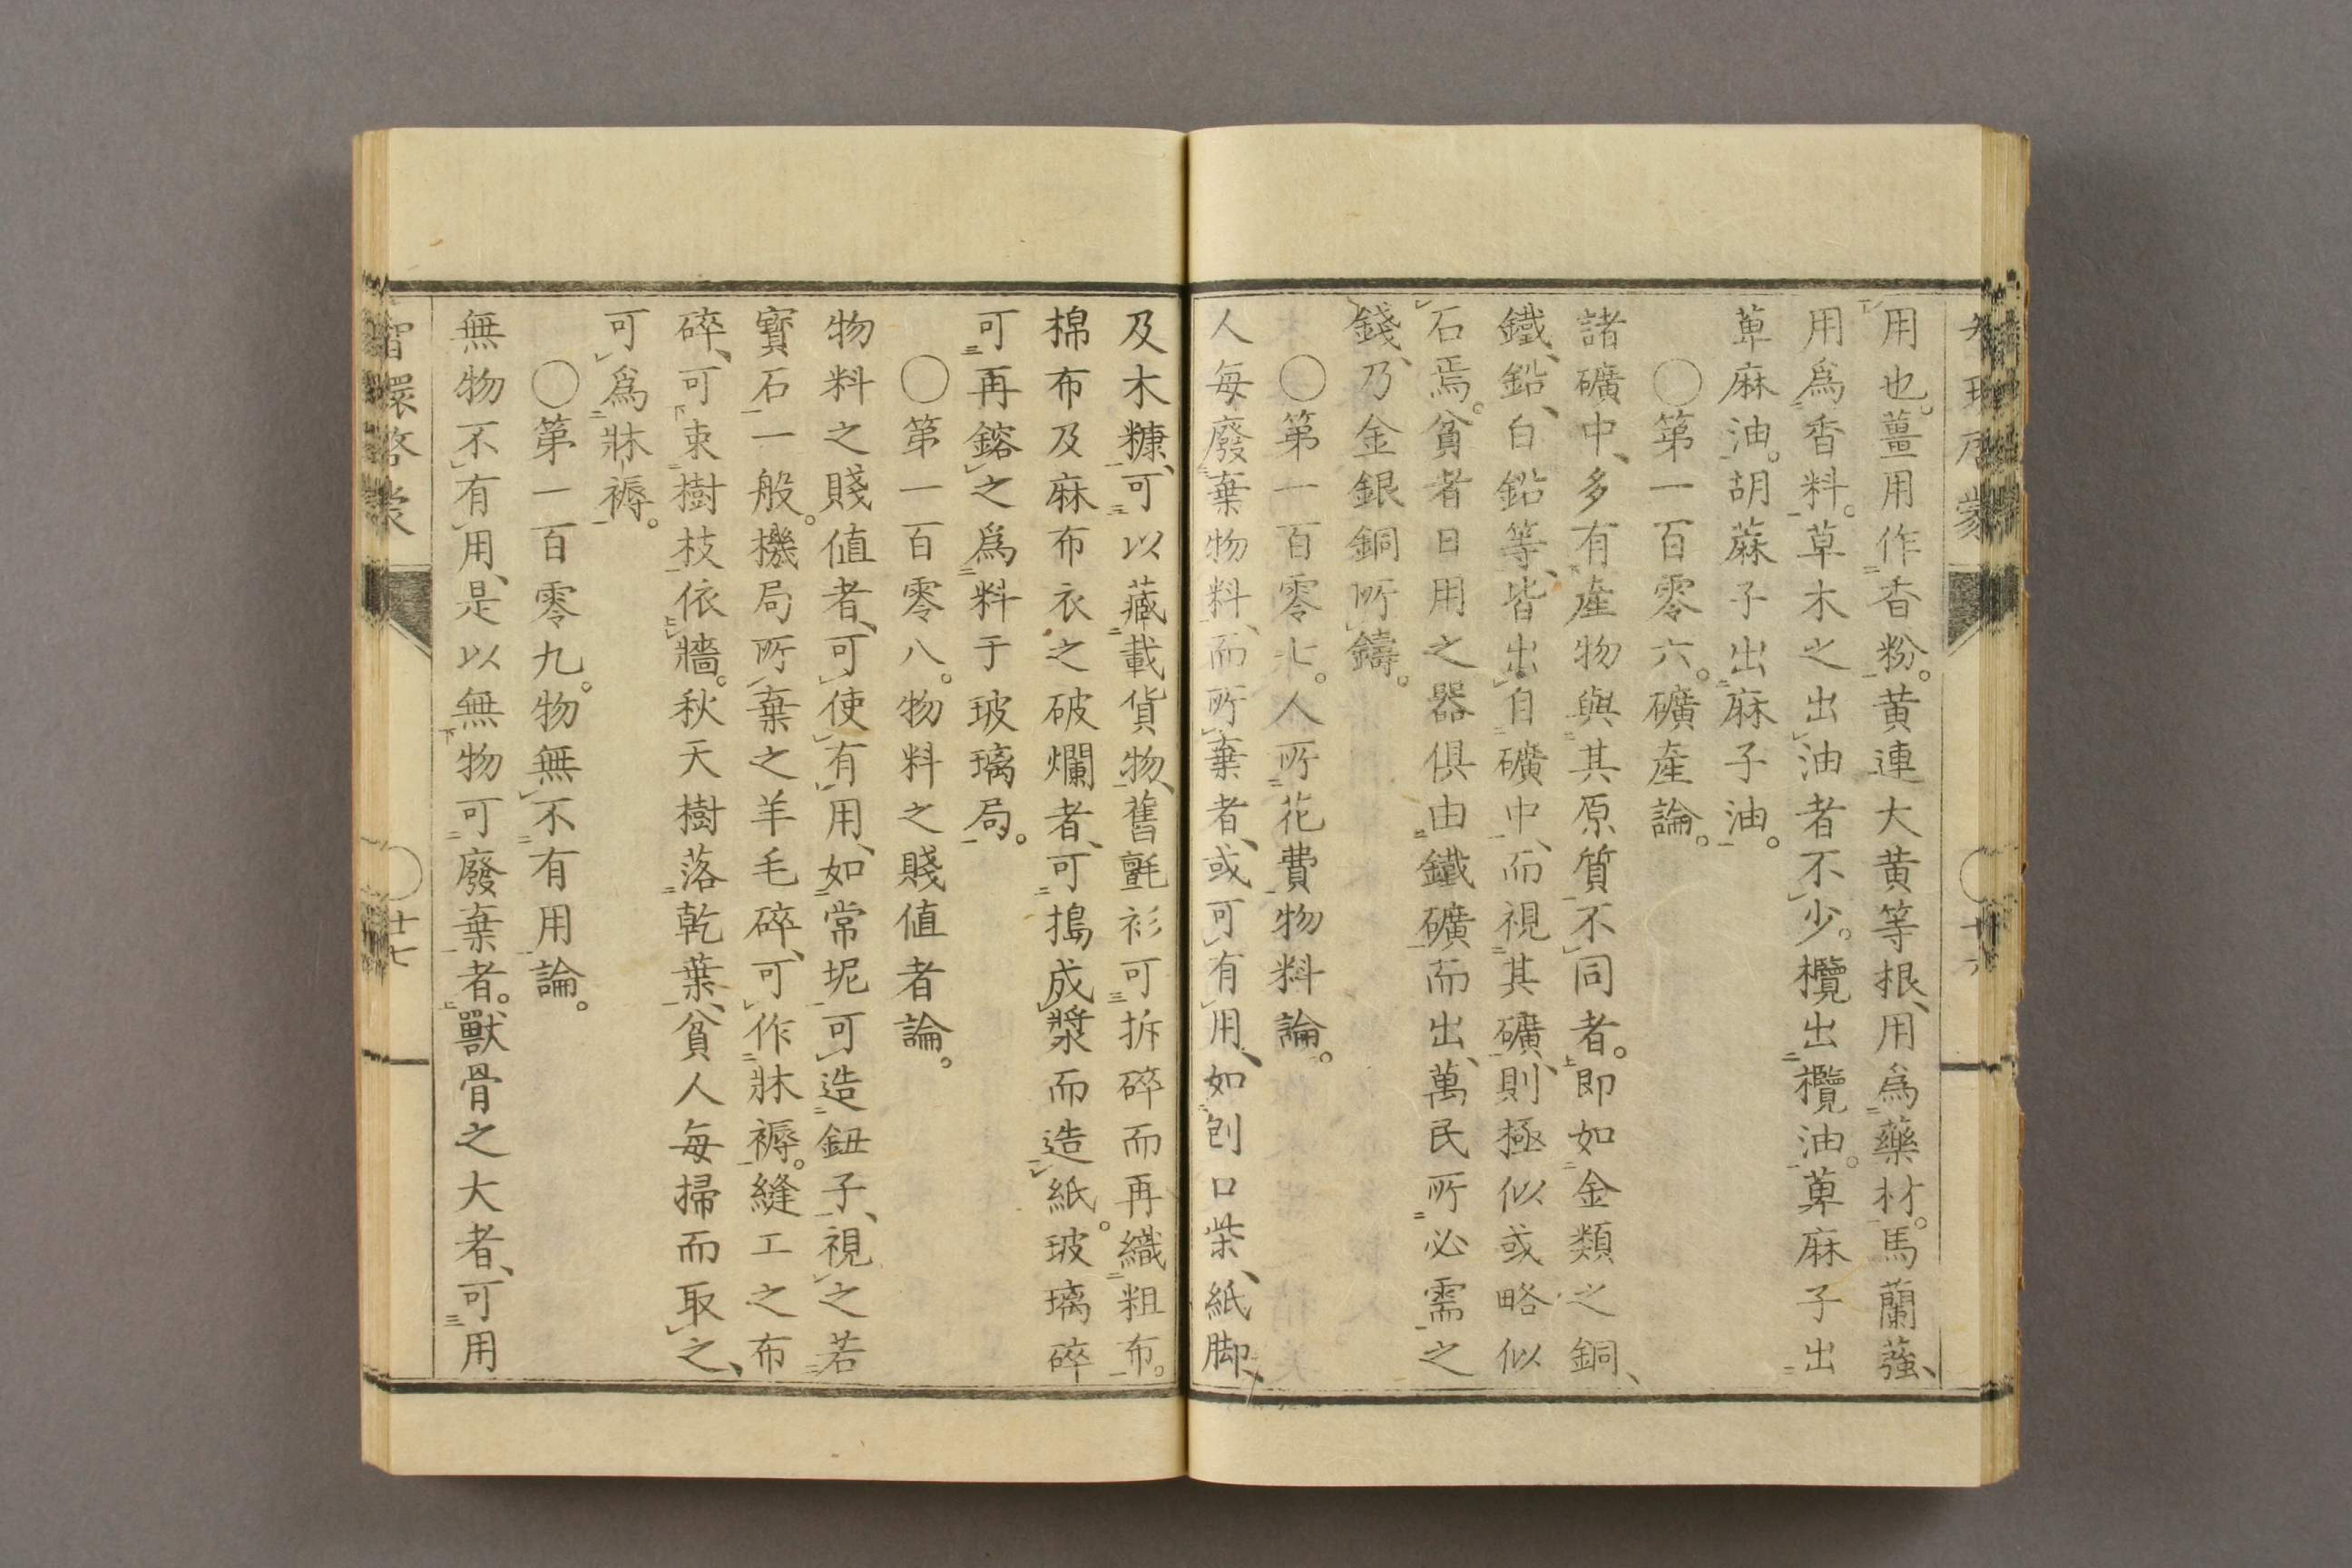 用也。薑用作香粉。黄連大黄等根、用爲藥材。馬蘭蔃、
用爲香料。草木之出油者不少。欖出欖油。萆麻子出
萆麻油。胡蔴子出麻子油。
〇第一百零六。礦產論。
諸礦中、多有產物與其原質不同者。即如金類之銅、
鐵、鉛、白鉛等、皆出自礦中、而視其礦、則極似或略似
石焉。貧者日用之器俱由鐵礦而出、萬民所必需之
錢、乃金銀銅所鑄。
〇第一百零七。人所花費物料論。
人每廢棄物料、而所棄者、或可有用、如刨口柴、紙脚、
及木糠、可以藏載貨物、舊氈衫可拆碎而再織粗布。
棉布及麻布衣之破爛者、可搗成漿而造紙。玻璃碎
可再鎔之爲料于玻璃局。
〇第一百零八。物料之賤值者論。
物料之賤值者、可使有用、如常坭可造鈕子、視之若
寶石一般。機局所棄之羊毛碎、可作牀褥。縫工之布
碎、可束樹枝依牆。秋天樹落乾葉、貧人每掃而取之、
可爲牀褥。
〇第一百零九。物無不有用論。
無物不有用、是以無物可廢棄者。獸骨之大者、可用
智環啓蒙
〇廿七